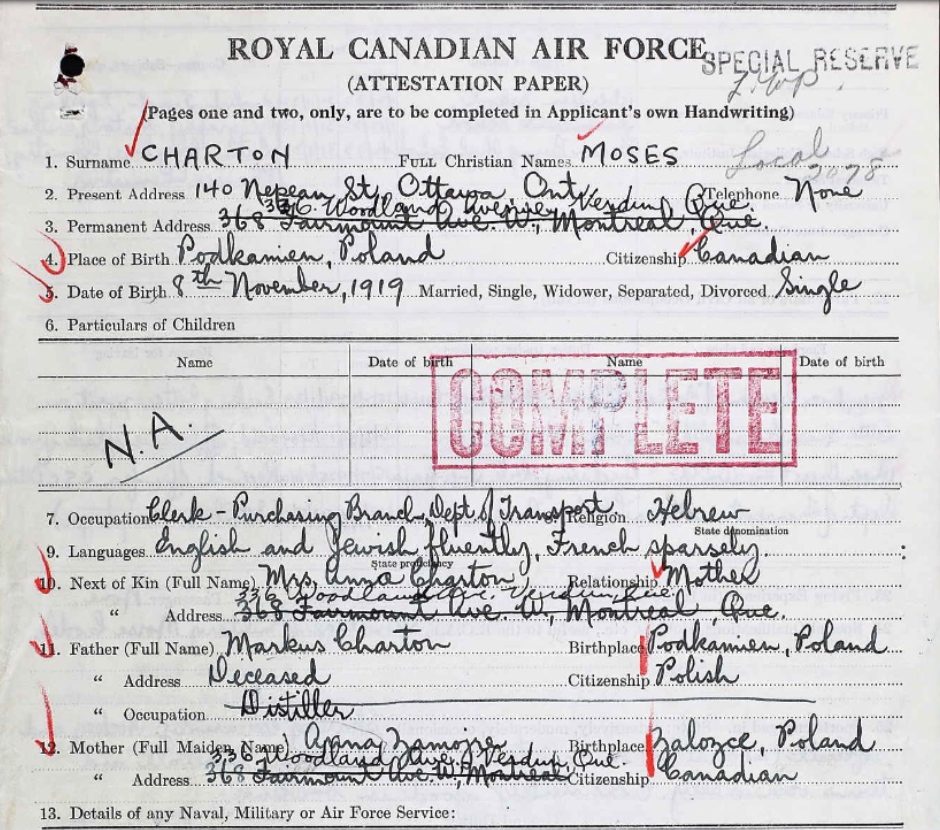 ROYAL CANADIAN AIR FORCE
SPECIAL RESERVE
(ATTESTATION PAPER)
(Pages one and two, only, are to be completed in Applicant's own Handwriting)
1. Surname CHARTON FULL Christian Names MOSES
Local
2. Present Address 140 Nepean St, Ottawa, Ont. Telephone None
336 Woodland Avenue, Verdun, Que.
3. Permanent Address 368 Fairmount Ave. W., Montreal, Que.
4. Place of Birth Podkamien, Poland Citizenship Canadian
5. Date of Birth 8th November, 1919 Married, Single, Widower, Separated, Divorced Single
6. Particulars of Children
Name Date of birth Name Date of birth
COMPLETE
N.A.
7. Occupation Clerk - Purchasing Branch, Dept of Transport 8. Religion Hebrew
State denomination
9. Languages English and Jewish fluently, French sparsely.
State proficiency
10. Next of Kin (Full Name) Mrs. Anna Charton Relationship Mother
336 Woodland Ave. Verdun, Que.
" Address 368 Fairmount Ave W., Montreal Que.
11. Father (Full Name) Markus Charton Birthplace Podkamien, Poland
" Address Deceased Citizenship Polish
" Occupation Distiller
12. Mother (Full Maiden Name) Birthplace Zalozce, Poland
336 Woodland Ave., Verdun, Que.
" Address 368 Fairmount Ave. W., Montreal Citizenship Canadian
13. Details of any Naval, Military or Air Force Service: